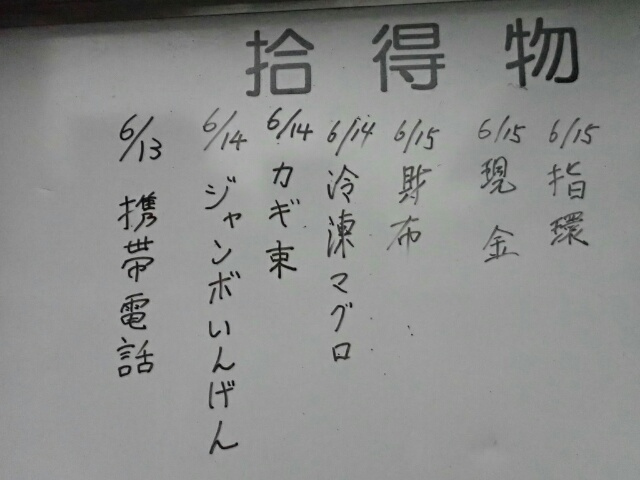 拾得物
6/15 指環
6/15 現金
6/15 財布
6/14 冷凍マグロ
6/14 カギ束
6/14 ジャンボいんげん
6/13 携帯電話